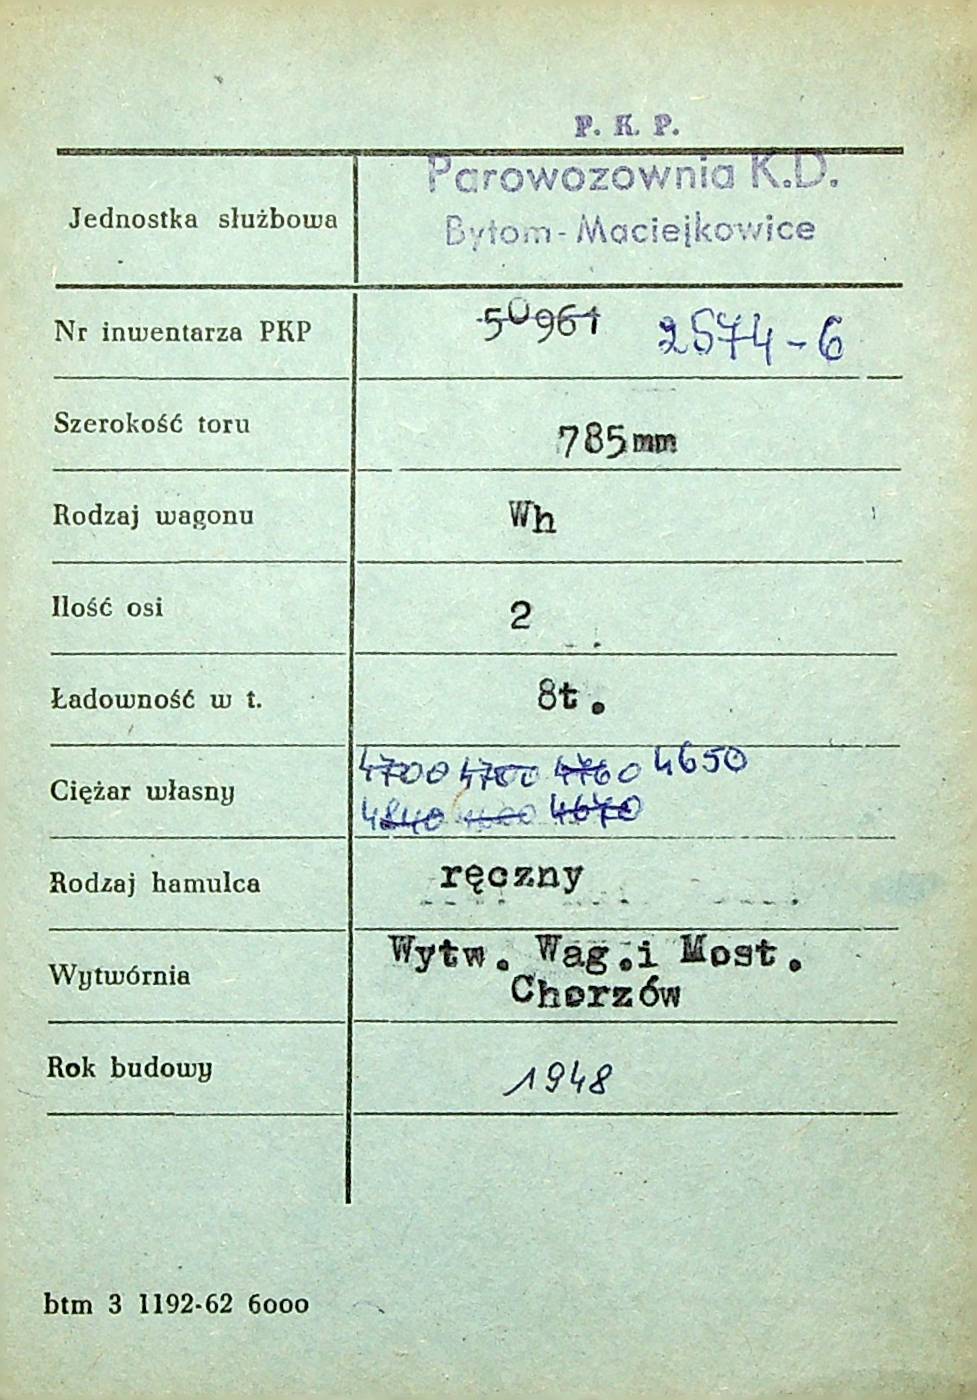 P. K. P.
Parowozownia K.D.
Jednostka służbowa
Bytom-Maciejkowice
Nr inwentarza PKP 50961 2574-6
Szerokość toru 785mm
Rodzaj wagonu Wh
Ilość osi 2
Ładowność w t. 8t.
4700 4700 4760 4650
Ciężar własny
4840 4670
Rodzaj hamulca ręczny
Wytw. Wag.i Most.
Wytwórnia
Chorzów
Rok budowy 1948
btm 3 1192-62 6000